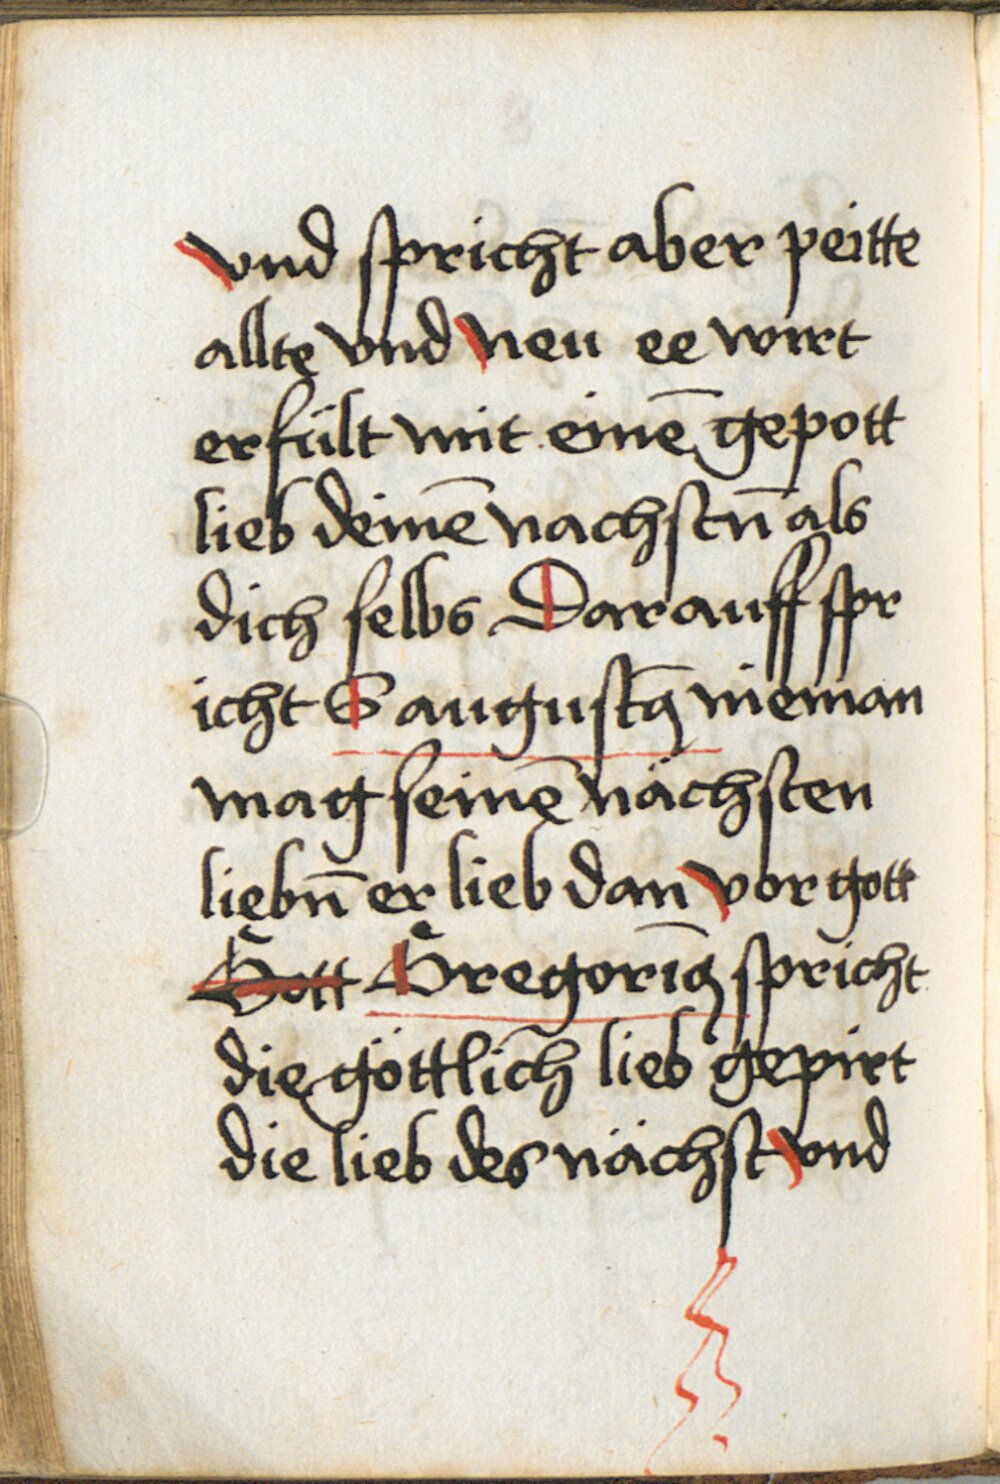 vnd spricht aber peitte
allte vnd neu ee wirt
erfült mit einē gepott
lieb deinē nachstn̄ als
dich selbs Darauff spr
icht S augustꝯ nieman
mag seinē nächsten
liebn̄ er lieb dan vor gott
Gott Gregoriꝯ spricht
die göttlich lieb gepirt
die lieb des nächst vnd